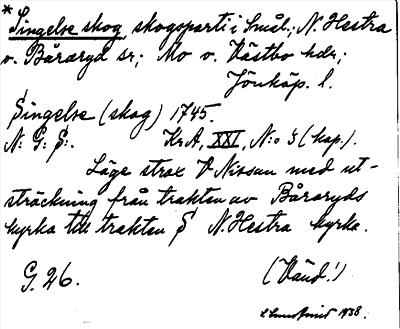 * Singelse skog skogsparti i Smål.; N. Hestra
o. Båraryd sr; Mo o. Västbo hdr;
Jönköp. l.
Singelse (skog) 1745.
N: G: S:. KrA, XXI, N:o 5 (kap.).
Läge strax V Nissan med ut-
sträckning från trakten av Båraryds
kyrka till trakten S N. Hestra kyrka.
G. 26. (Vänd!)
1938.